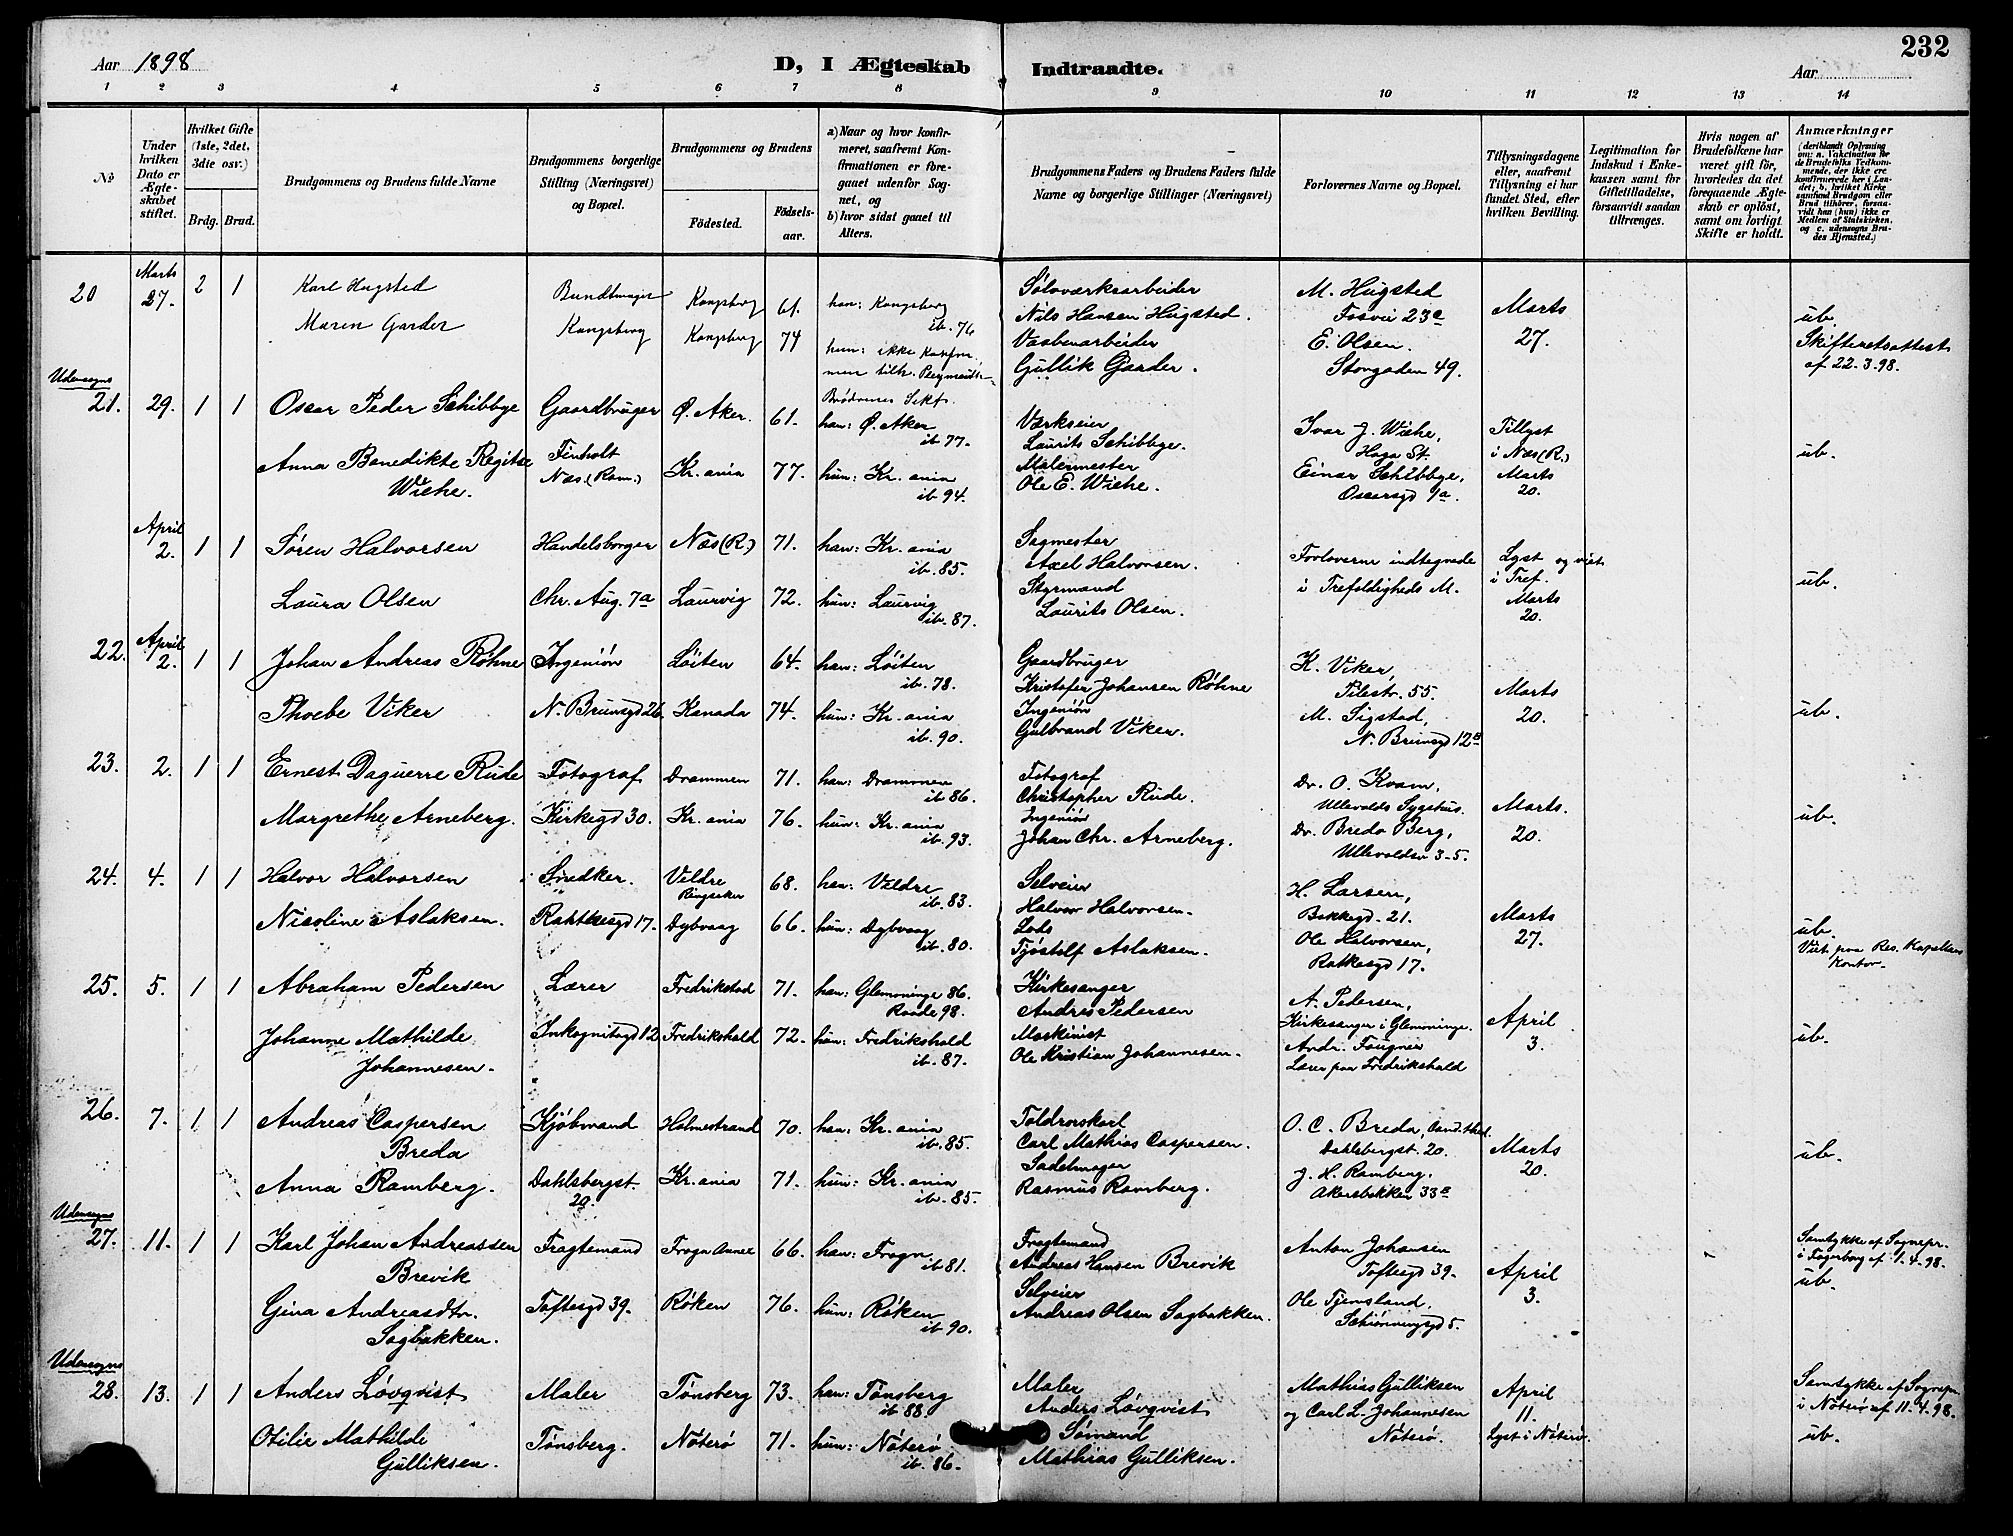 232
Aar 1898
D, I Ægteskab
Indtraadte.
Aar
1 2 3 4 5 6 7 8 9 10 11 12 13 14
№
Under hvilken Dato er Ægteskabet stiftet.
Hvilket Gifte (1ste, 2det, 3die osv.)
Brdg. Brud.
Brudgommens og Brudens fulde Navne
Brudgommens borgerlige Stilling (Næringsvei) og Bopæl.
Brudgommens og Brudens
Fødested.
Fødselsaar.
a) Naar og hvor konfirmeret, saafremt Konfirmationen er foregaaet udenfor Sognet, og
b) hvor sidst gaaet til Alters.
Brudgommens Faders og Brudens Faders fulde Navne og borgerlige Stillinger (Næringsvei)
Forlovernes Navne og Bopæl.
Tillysningsdagene eller, saafremt Tillysning ei har fundet Sted, efter hvilken Bevilling.
Legitimation for Indskud i Enkekassen samt for Giftetilladelse, forsaavidt saadan tiltrænges.
Hvis nogen af Brudefolkene har været gift før, hvorledes da det foregaaende Ægteskab er opløst, samt om lovligt Skifte er holdt.
Anmærkninger (deriblandt Oplysning om: a. Vaccination for de Brudefolks Vedkommende, der ikke ere konfirmerede her i Landet; b. hvilket Kirkesamfund Brudgom eller Brud tilhører, forsaavidt han (hun) ikke er Medlem af Statskirken, og c. udensogns Brudes Hjemsted.)
20 Marts 27. 2 1 Karl Hugsted Bundtmager Kongsberg 61. han: Kongsberg ib. 76 Sølvværksarbeider Nils Hansen Hugsted. M. Hugsted Fosvei 23a Marts 27. ub.
Maren Garder Kongsberg Kongsberg 74 hun: ikke Konfir., men tilh. Brødrenes Sekt. Gullik Garder. E. Olsen. Storgaden 49. Skifteretsattest af 22.3.98.
Udensogns
21. 29. 1 1 Oscar Peder Schibbye Gaardbruger Ø. Aker. 61. han: Ø. Aker ib 77. Værkseier Laurits Schibbye. Ivar J. Wiehe, Haga St. Tillyst i Næs (R.) Marts 20. ub.
Anna Benedikte Regitse Wiehe. Finholt Næs. (Rom.) Kr.ania 77. hun: Kr.ania ib 94. Malermester Ole E. Wiehe. Einar Schibbye, Oscarsgd 1a.
April 2. 1 1 Søren Halvorsen Handelsborger Næs (R.) 71. han: Kr.ania ib. 85. Sagmester Axel Halvorsen. Forloverne indtegnede i Trefoldigheds M. Lyst og viet i Tref. Marts 20. ub.
Laura Olsen Chr. Aug. 7a Laurvig 72. hun: Laurvig ib. 87. Styrmand Laurits Olsen.
22. April 2. 1 1 Johan Andreas Røhne Ingeniør Løiten 64. han: Løiten ib. 78. Gaardbruger Kristofer Johansen Røhne K. Viker, Pilestr. 55. Marts 20. ub.
Phoebe Viker N. Brunsgd 26. Kanada 74. hun: Kr.ania ib. 90. Ingeniør Gulbrand Viker. M. Sigstad, N. Brunsgd 12a
23. 2. 1 1 Ernest Daguerre Rude Fotograf Drammen 71. han: Drammen ib 86. Fotograf Christopher Rude. Dr. O. Kvam, Ullevolds Sygehus. Marts. 20. ub.
Margrethe Arneberg. Kirkegd 30. Kr.ania 76. hun: Kr.ania ib. 93. Ingeniør Johan Chr. Arneberg. Dr. Breda Berg, Ullevoldsv 3-5.
24. 4. 1 1 Halvor Halvorsen Snedker. Veldre Ringsaker 68. han: Veldre ib. 83. Selveier Halvor Halvorsen. H. Larsen, Bakkegd. 21. Marts 27. ub.
Nicoline Aslaksen. Rathkesgd 17. Dybvaag 66. hun: Dybvaag ib. 80. Lods Tjøstolf Aslaksen. Ole Halvorsen, Ratkesgd 17. Viet paa Res. Kapellans Kontor.
25. 5. 1 1 Abraham Pedersen Lærer Fredrikstad 71. han: Glemminge 86. Raade 98. Kirkesanger Andres Pedersen A. Pedersen, Kirkesanger i Glemminge. April 3. ub.
Johanne Mathilde Johannesen. Inkognitogd 12 Fredrikshald 72. hun: Fredrikshald ib. 87. Maskinist Ole Kristian Johannesen. Andr. Fougner Lærer paa Fredrikshald
26. 7. 1 1 Andreas Caspersen Breda Kjøbmand Holmestrand 70. han: Kr.ania ib. 85. Toldrorskarl Carl Mathias Caspersen. O. C. Breda, Cand. theol. Dahlsbergst. 20. Marts 20. ub.
Anna Ramberg. Dahlsbergst. 20. Kr.ania 71. hun: Kr.ania ib. 85. Sadelmager Rasmus Ramberg. J. H. Ramberg. Akersbakken 33a
Udensogns
27. 11. 1 1 Karl Johan Andreassen Brevik Fragtemand Frogn Annex 66. han: Frogn ib 81. Fragtemand Andreas Hansen Brevik Anton Johansen Toftesgd 39. April 3. Samtykke af Sognepr. i Fagerborg af 1.4.98. ub.
Gina Andreasdtr. Sagbakken. Toftesgd 39. Røken 76. hun: Røken ib 90. Selveier Andreas Olsen Sagbakken. Ole Tjemsland, Schønningsgd 5.
Udensogns
28. 13. 1 1 Anders Løvqvist Maler Tønsberg 73. han: Tønsberg ib 88. Maler Anders Løvqvist Mathias Gulliksen og Carl L. Johannesen Nøterø. April 11. Lyst i Nøterø. Samtykke af Sognepr. i Nøterø af 11.4.98. ub.
Otilie Mathilde Gulliksen. Tønsberg. Nøterø 71. hun: Nøterø ib. 86. Sømand Mathias Gulliksen.